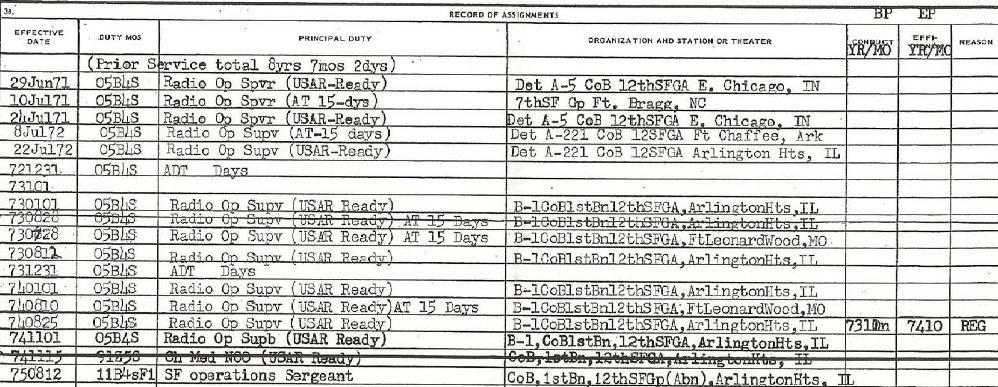 38. RECORD OF ASSIGNMENTS BP EP
EFFECTIVE DATE DUTY MOS PRINCIPAL DUTY ORGANIZATION AND STATION OR THEATER CONDUCT YR/MO EFFI- YR/MO REASON
(Prior Service total 8yrs 7mos 2dys)
29Jun71 05B4S Radio Op Spvr (USAR-Ready) Det A-5 CoB 12thSFGA E. Chicago, IN
10Jul71 05B4S Radio Op Spvr (AT 15-dys) 7thSF Gp Ft. Bragg, NC
24Jul71 05B4S Radio Op Spvr (USAR-Ready) Det A-5 CoB 12thSFGA E. Chicago, IN
8Jul72 05B4S Radio Op Supv (AT-15 days) Det A-221 CoB 12SFGA Ft Chaffee, Ark
22Jul72 05B4S Radio Op Supv (USAR-Ready) Det A-221 CoB 12SFGA Arlington Hts, IL
721231 05B4S ADT Days
73101
730101 05B4S Radio Op Supv (USAR Ready) B-1CoB1stBn12thSFGA,ArlingtonHts,IL
730828 05B4S Radio Op Supv (USAR Ready) AT 15 Days B-1CoB1stBn12thSFGA,ArlingtonHts,IL
730728 05B4S Radio Op Supv (USAR Ready) AT 15 Days B-1CoB1stBn12thSFGA,FtLeonardWood,MO
730812 05B4S Radio Op Supv (USAR Ready) B-1CoB1stBn12thSFGA,ArlingtonHts,IL
731231 05B4S ADT Days
740101 05B4S Radio Op Supv (USAR Ready) B-1CoB1stBn12thSFGA,ArlingtonHts,IL
740810 05B4S Radio Op Supv (USAR Ready)AT 15 Days B-1CoB1stBn12thSFGA,FtLeonardWood,MO
740825 05B4S Radio Op Supv (USAR Ready) B-1CoB1stBn12thSFGA,ArlingtonHts,IL 7410 REG
741101 05B4S Radio Op Supb (USAR Ready) B-1,CoB1stBn,12thSFGA,ArlingtonHts,IL
741115 Ch Med NCO (USAR Ready) CoB,1stBn,12thSFGA,ArlingtonHts, IL
750812 11B4SF1 SF operations Sergeant CoB,1stBn,12thSFGp(Abn),ArlingtonHts, IL